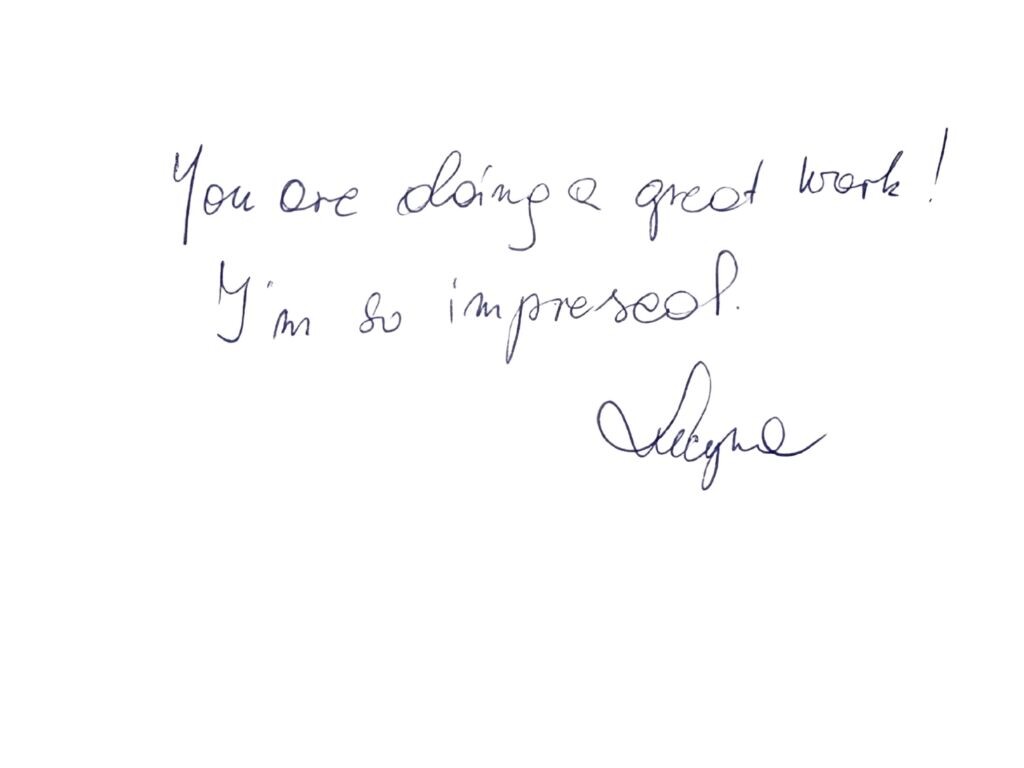 You are doing a great work!
I'm so impresed.